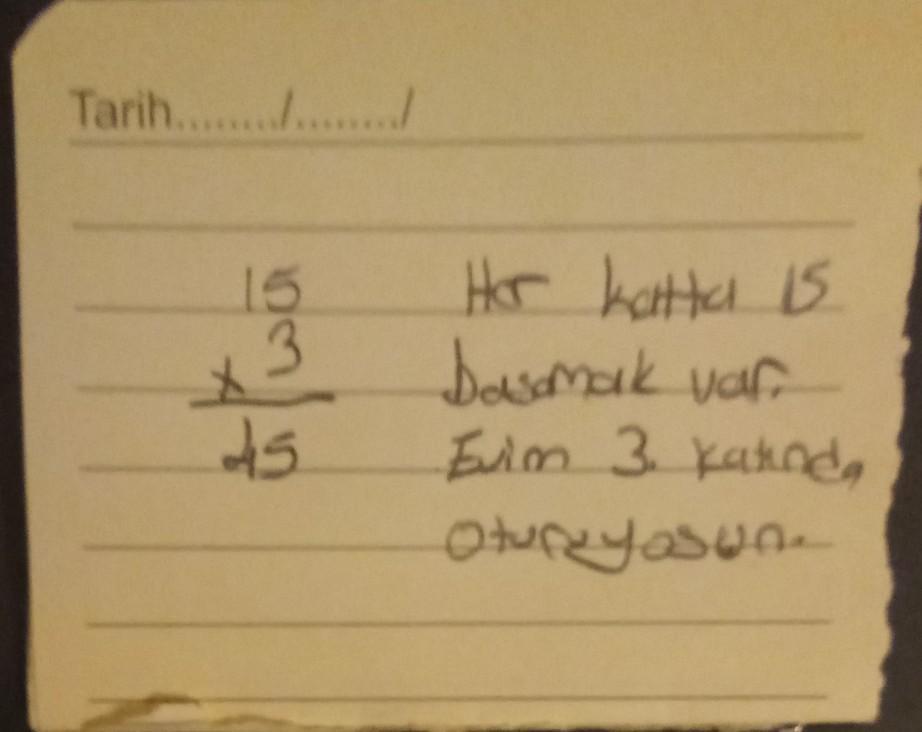 Tarih......../......../
15
x 3
45
Her katta 15
basamak var.
Evim 3. katında
oturuyosun.